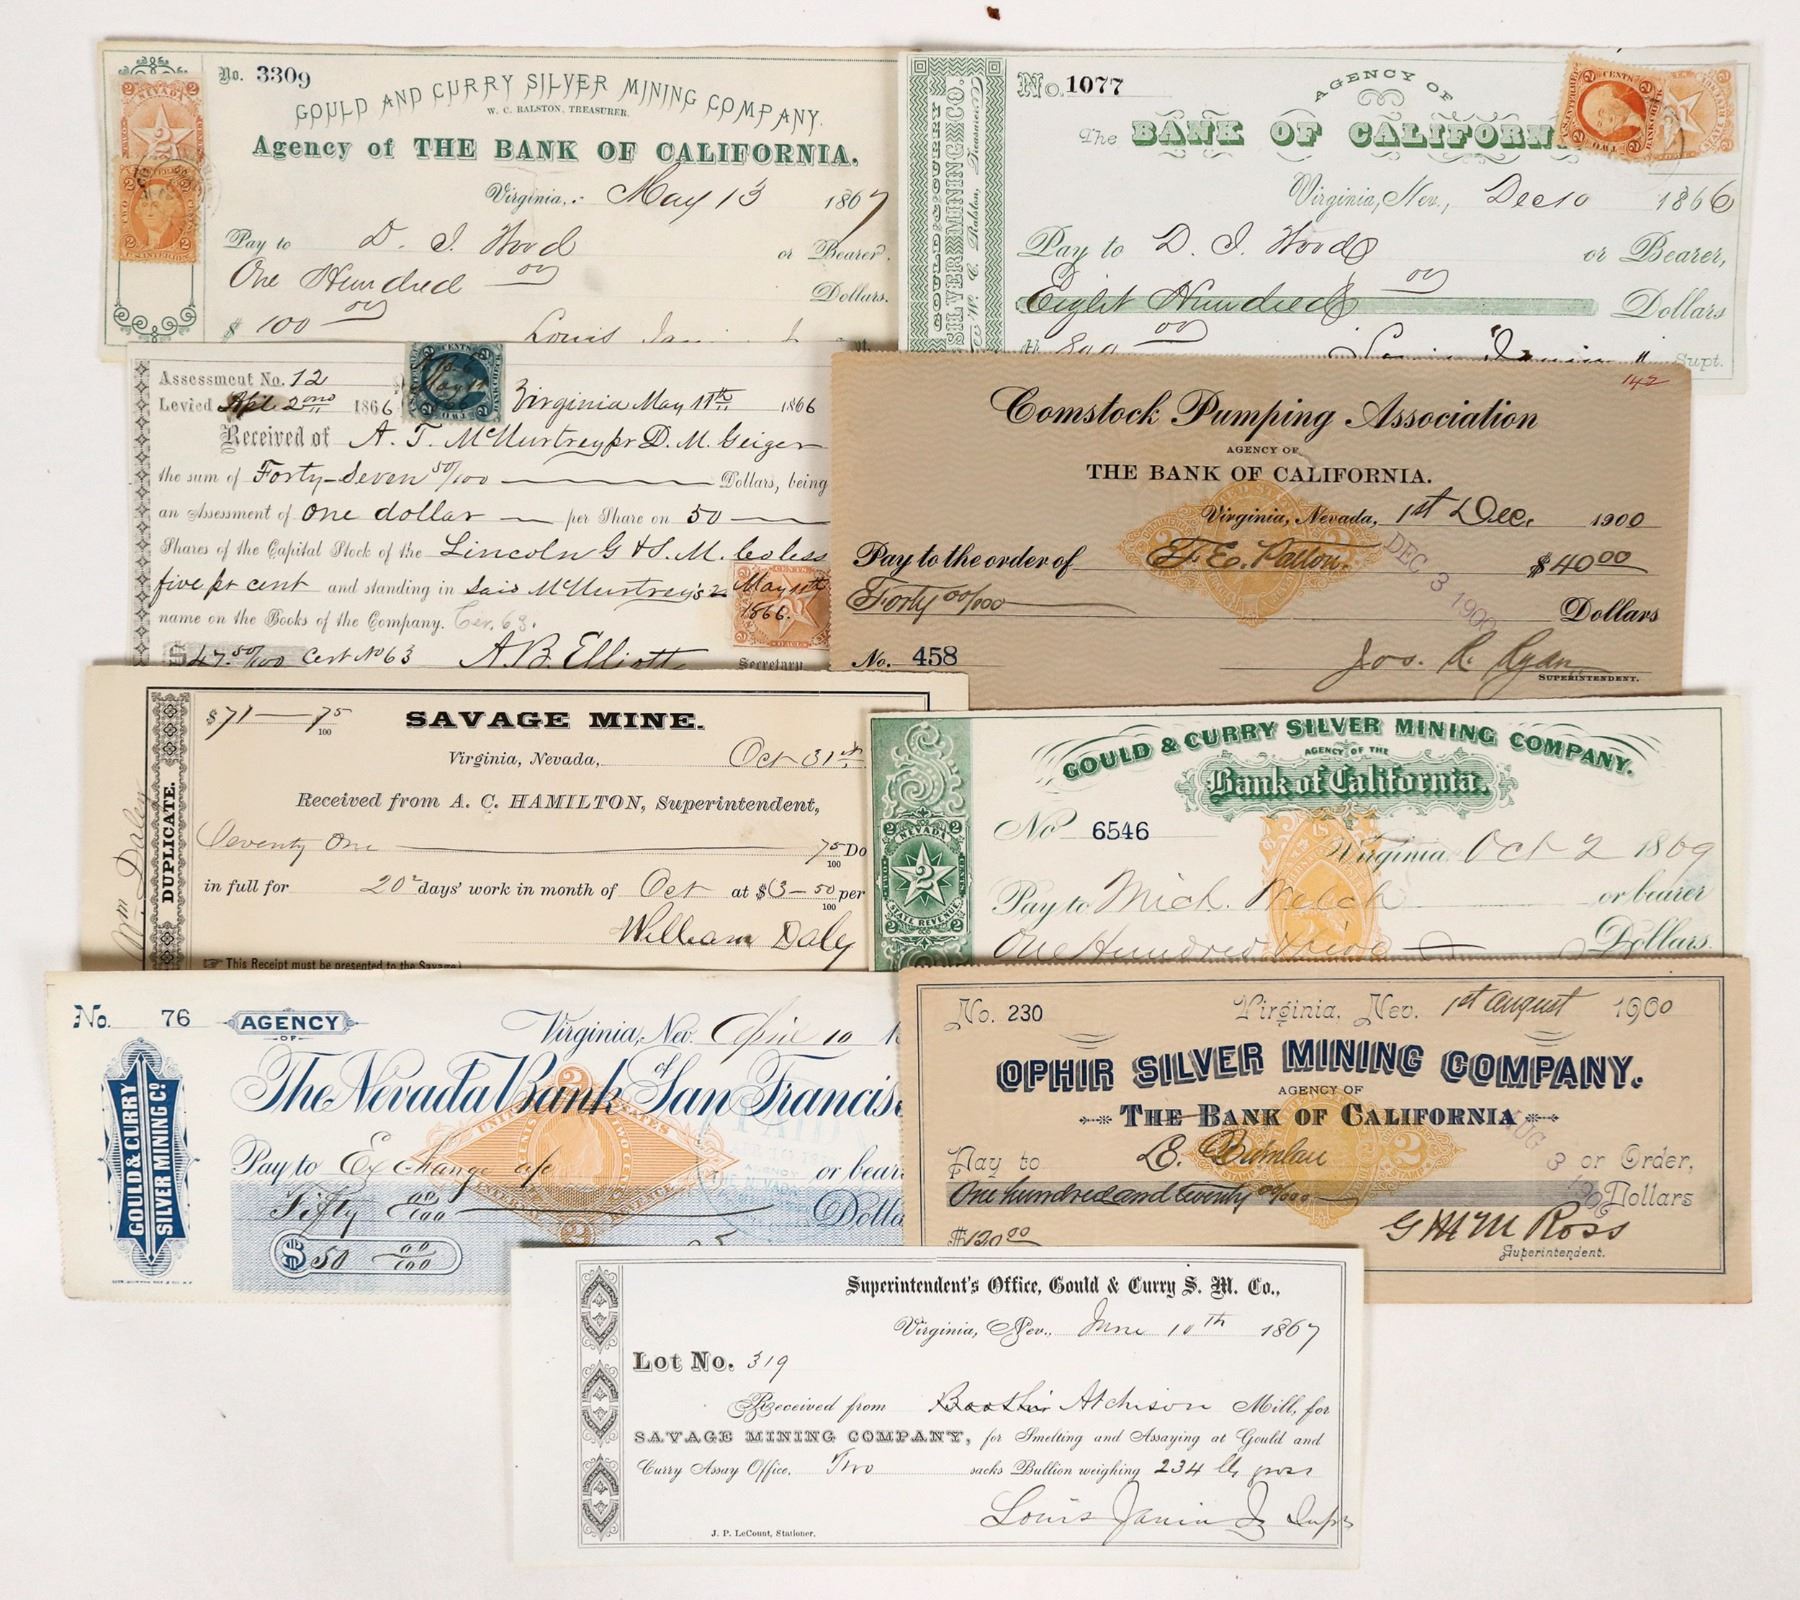 No. 3309
GOULD AND CURRY SILVER MINING COMPANY.
W. C. RALSTON, TREASURER.
Agency of THE BANK OF CALIFORNIA.
Virginia, May 13 1867
Pay to D. I. Wood or Bearer.
One Hundred Dollars.
$ 100
Louis Janin
NEVADA
No. 1077
AGENCY OF
The BANK OF CALIFORN
GOULD & CURRY SILVER MINING CO.
W. C. Ralston, Treasurer
Virginia, Nev., Dec 10 1866
Pay to D. I. Wood or Bearer,
Eight Hundred Dollars
Louis Janin Supt.
Assessment No. 12
Levied Apl. 2nd 1866 Virginia May 11th 1866
Received of A. T. McMurtrey pr D. M. Geiger
the sum of Forty-Seven 50/100 Dollars, being
an Assessment of One dollar per Share on 50
Shares of the Capital Stock of the Lincoln G & S. M. Co less
five pr cent and standing in Said McMurtrey's
name on the Books of the Company. Cer. 63.
May 11th 1866.
$47.50/100 Cert No 63 A. B. Elliott Secretary
142
Comstock Pumping Association
AGENCY OF
THE BANK OF CALIFORNIA.
Virginia, Nevada, 1st Dec. 1900
Pay to the order of F. E. Patton. $40 00
DEC 3 1900
Forty 00/100 Dollars
No. 458 Jos. R. Ryan
SUPERINTENDENT.
$71 75/100 SAVAGE MINE.
Virginia, Nevada, Oct 31st
Received from A. C. HAMILTON, Superintendent,
Seventy One 75/100 Do
in full for 20 days' work in month of Oct at $3-50/100 per
William Daly
DUPLICATE.
Wm Daley
This Receipt must be presented to the Savage
GOULD & CURRY SILVER MINING COMPANY.
AGENCY OF THE
Bank of California.
No 6546
Virginia Oct 2 1869
Pay to Mich. Welch or bearer
One Hundred Dollars.
NEVADA
2
STATE REVENUE
TWO CENTS
No. 76 AGENCY OF Virginia, Nev. April 10
The Nevada Bank of San Francis
GOULD & CURRY SILVER MINING CO.
Pay to Exchange a/c or bear
Fifty 00/100 Dolla
$50 00/100
No. 230 Virginia, Nev. 1st August 1900
OPHIR SILVER MINING COMPANY.
AGENCY OF
THE BANK OF CALIFORNIA
Pay to or Order,
One hundred and twenty 00/100 Dollars
$120 00 G McM Ross
Superintendent.
Superintendent's Office, Gould & Curry S. M. Co.,
Virginia, Nev., June 10th 1867
Lot No. 319
Received from Atchison Mill, for
SAVAGE MINING COMPANY, for Smelting and Assaying at Gould and
Curry Assay Office, Two sacks Bullion weighing 234 lbs gross
Louis Janin Jr Supt
J. P. LeCount, Stationer.